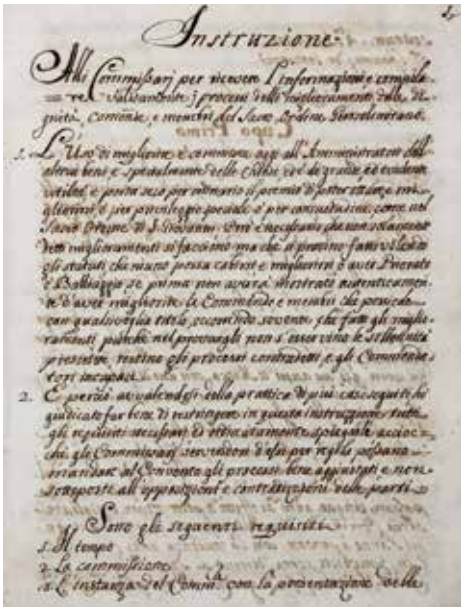 Instruzione
Alli Commissarj per ricevere l'informazioni e compila-
= re validamente i processi delle miglioramenti delle di-
gnità, comende, e membri del Sacro Ordine Gerosolimitano.
Capo Primo
1. L'Uso di migliorare è commune oggi all'Amministratori dell'
altrui beni e specialmente delle Chiese ed è di grande ed evidente
utilità, e porta seco per ordinario il premio di poter
o per privileggio speciale o per consuetudine, come nel
Sacro Ordine di S. Giovanni, ove è necessario che non solamente
detti miglioramenti si faccino ma che si provino
gli statuti che niuno possa cabirsi e migliorirsi o aver Priorato
o Balliaggio se prima non avarà mostrato autenticamen-
te d'aver migliorate le Commende e membri che possiede
con qualsivoglia titolo, occorrendo sovente che fatti gli miglio-
ramenti perché nel provargli non s'osservino le sollennità
prescritte restino gli processi contradetti e gli Commenda-
tori incapaci.
2. E perciò avvalendosi della prattica di più casi seguiti hò
giudicato far bene di restringere in questa instruzione tutti
gli requisiti necessari ed ordinatamente spiegarli accioc-
chè gli Commissari servendosi d'essi per regola possano
mandare al Convento gli processi bene aggiustati e non
sottoposti all'opposizioni e contradizioni delle parti
Sono gli seguenti requisiti
1. Il tempo
2. La commissione
3. L'instanza del Comm.re con la presentazione delle